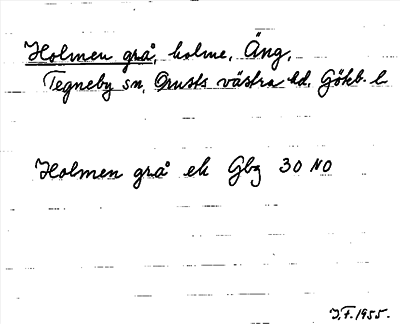 Holmen grå, holme, Äng,
Tegneby sn, Orusts västra hd, Götkb. l.
Holmen grå ek Gbg 30 NO
J.F. 1955.